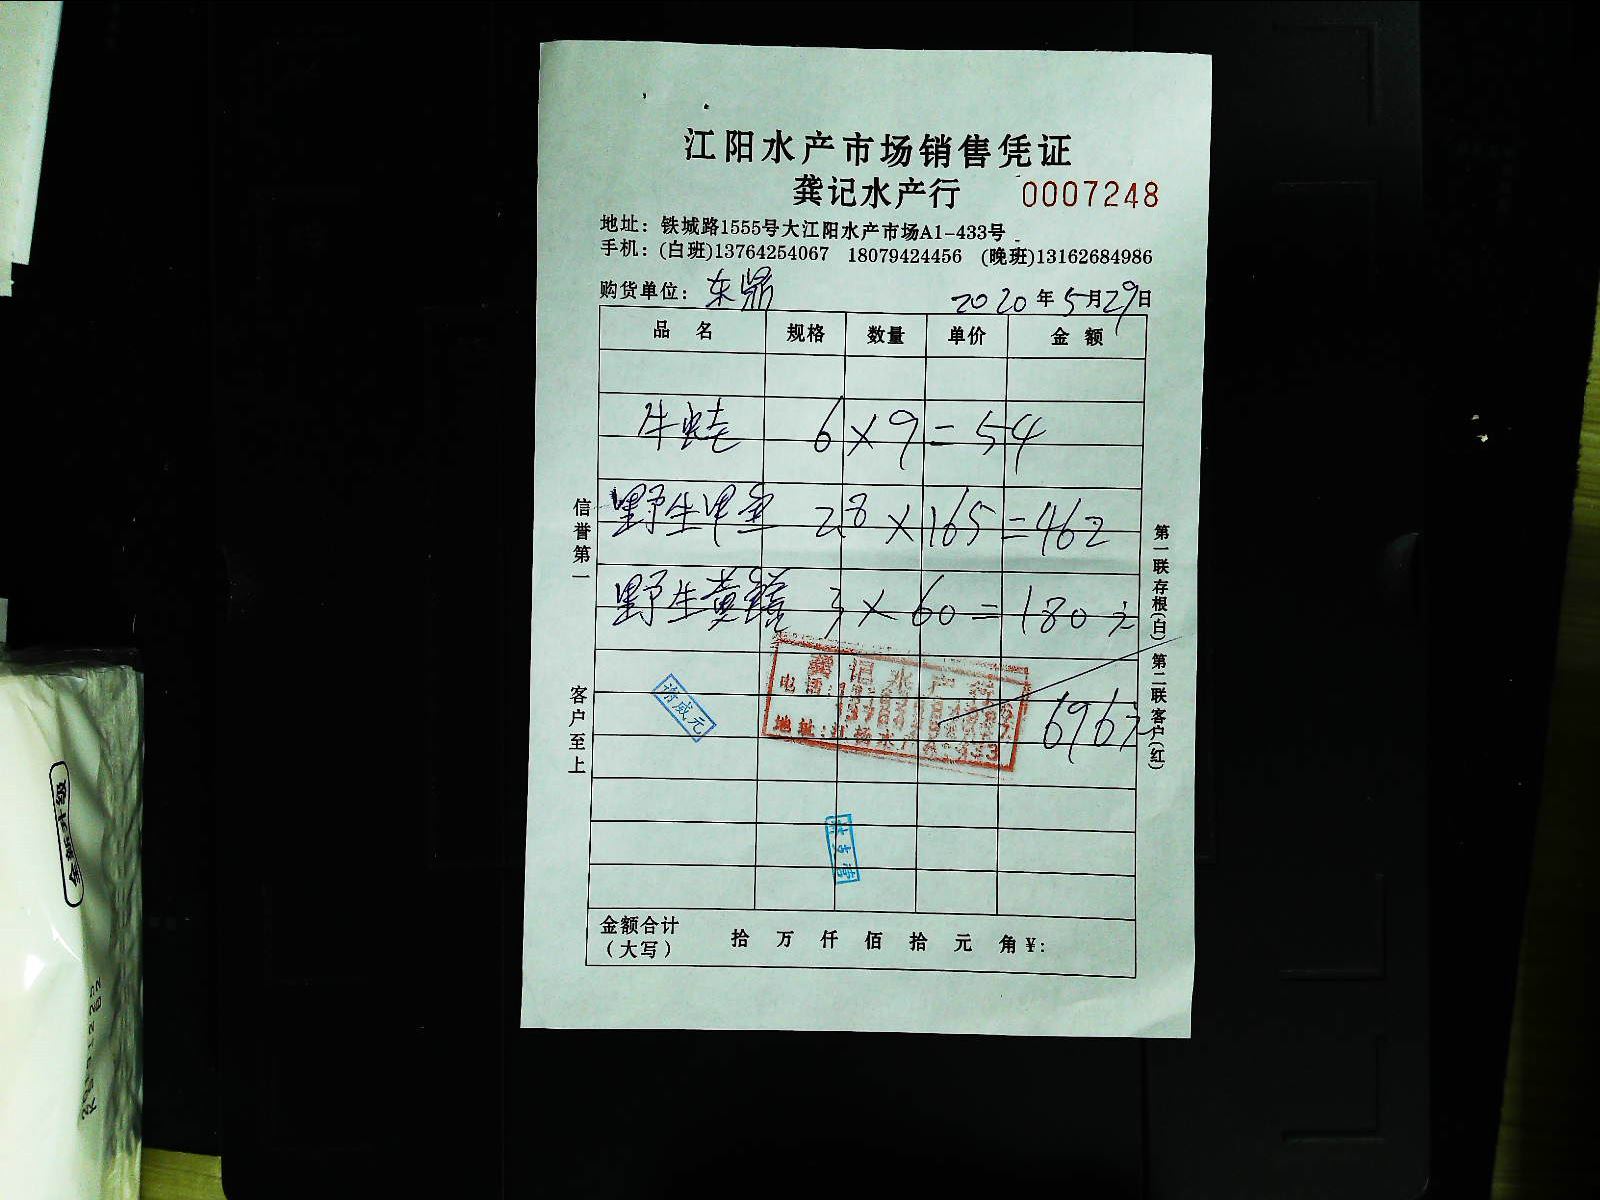 江阳水产市场销售凭证
龚记水产行 0007248
地址：铁城路1555号大江阳水产市场A1-433号
手机：(白班)13764254067 18079424456 (晚班)13162684986
购货单位：东鼎 2020年5月29日
品 名 规格 数量 单价 金 额
牛蛙 6×9=54
野生甲鱼 2.8×165=462
野生黄鳝 3×60=180元
696元
龚记水产行
电话:
地址:江杨水产
金额合计
（大写） 拾 万 仟 佰 拾 元 角 ¥:
信誉第一
客户至上
第一联存根(白) 第二联客户(红)
全新升级